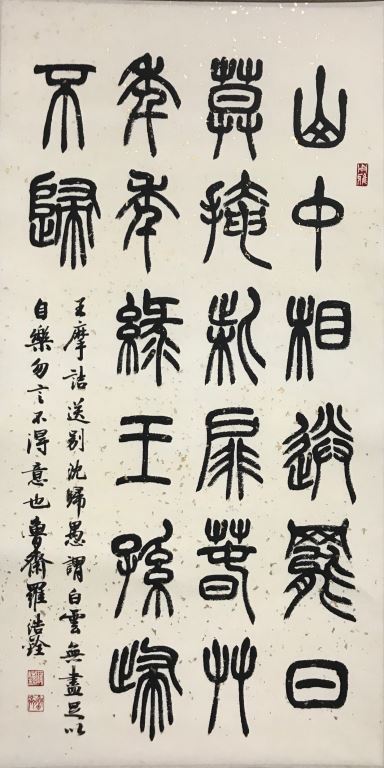 山中相送罷日
莫掩柴扉春草
年年綠王孫歸
不歸
王摩詰送別沈歸愚謂白雲無盡足以
自樂勿言不得意也齋羅浩銓